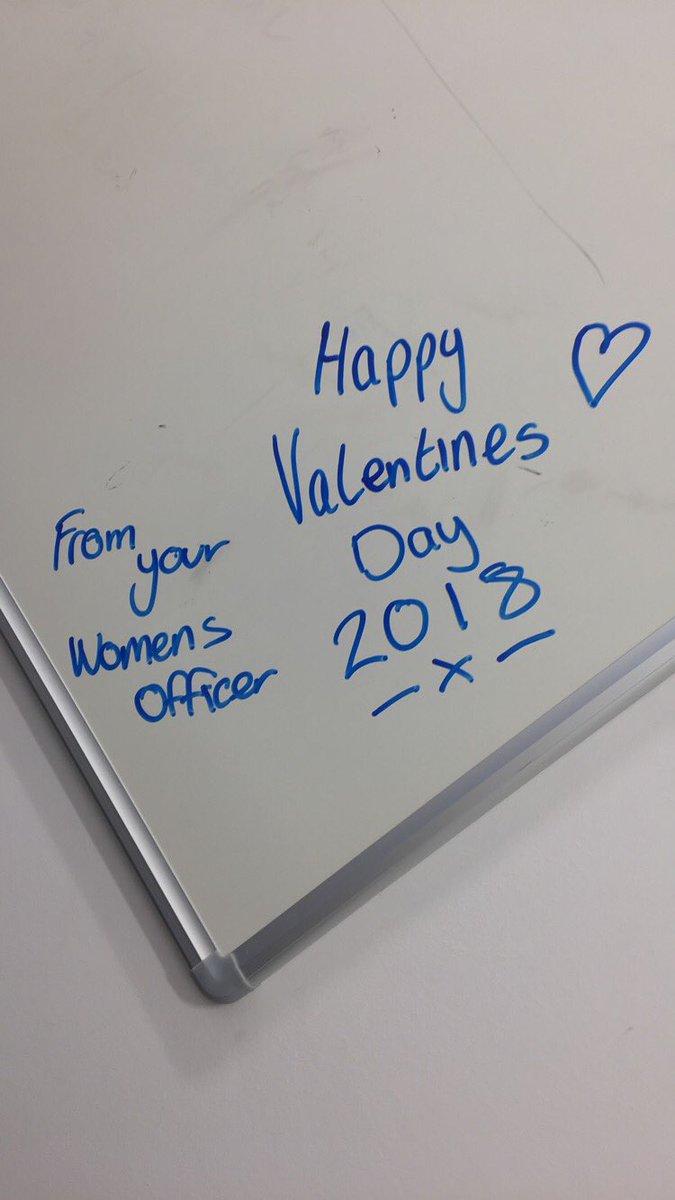 Happy
Valentines
Day
2018
– x –
From
your
Womens
Officer